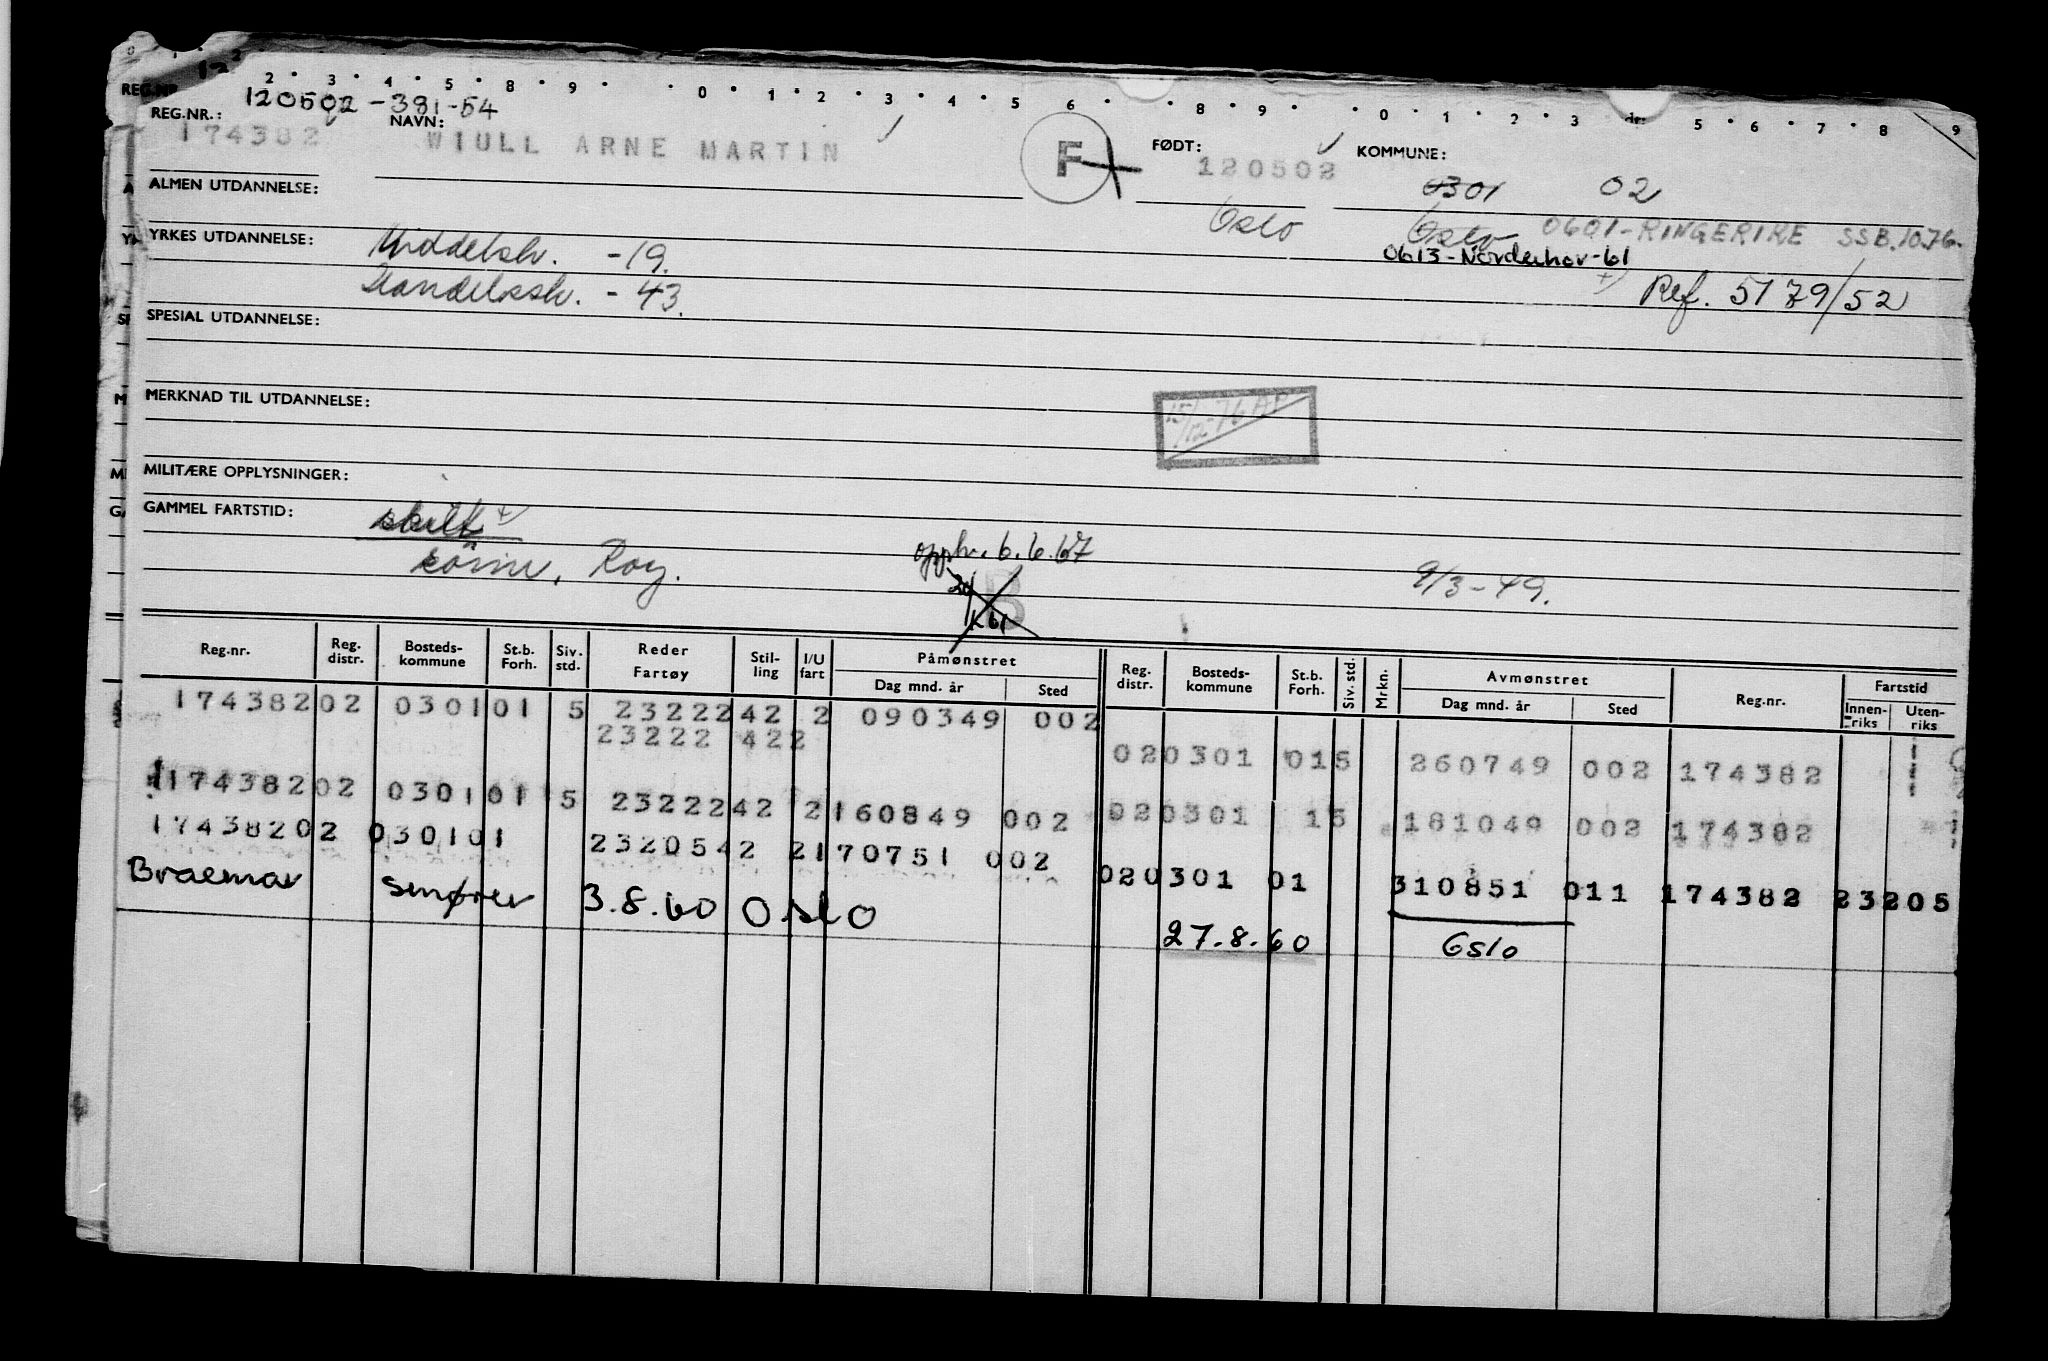 2 · 3 · 4 · 5 · 8 · 9 · · 0 · 1 · 2 · 3 · 4 · 5 6 · · 8 · 9 · · 0 · 1 · 2 · 3 5 · 6 · 7 · 8 9
REG.NR.: 120502-391-54 NAVN: FØDT: KOMMUNE:
174382 WIULL ARNE MARTIN F 120502
0301 02
ALMEN UTDANNELSE: Oslo Oslo 0601-RINGERIKE SSB.10.76.
YRKES UTDANNELSE: Middelsk. -19. 0613-Norderhov-61
Handelssk. - 43. Ref. 5179/52
SPESIAL UTDANNELSE:
MERKNAD TIL UTDANNELSE: 15/12-76 AP
MILITÆRE OPPLYSNINGER:
GAMMEL FARTSTID: skilt
Roy. opph. 6.6.67 9/3-49.
B
Reg.nr. Reg. distr. Bosteds-kommune St.b. Forh. Siv. std. Reder Fartøy Stil-ling I/U fart Påmønstret Dag mnd. år Sted Reg. distr. Bosteds-kommune St.b. Forh. Siv. std. Mrkn. Avmønstret Dag mnd. år Sted Reg.nr. Fartstid Innen-riks Uten-riks
174382 02 0301 01 5 23222 42 2 090349 002
23222 42 2 02 0301 01 5 260749 002 174382
174382 02 0301 01 5 23222 42 2 160849 002 02 0301 1 5 181049 002 174382
174382 02 0301 01 23205 42 2 170751 002 02 0301 01 310851 011 174382 23205
Braemar smører 3.8.60 Oslo 27.8.60 Oslo